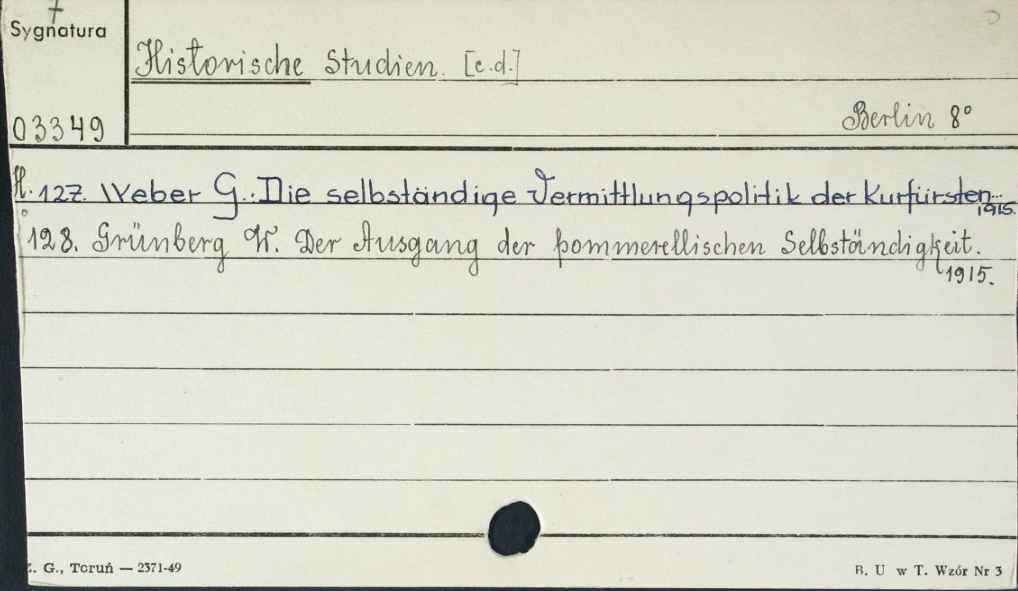 Sygnatura
Historische Studien. [c.d.]
03349
Berlin 8°
H. 127. Weber G.: Die selbständige Vermittlungspolitik der Kurfürsten...
1915.
128. Grünberg W. Der Ausgang der pommerellischen Selbständigkeit.
1915.
Z. G., Toruń — 2371-49
B. U w T. Wzór Nr 3